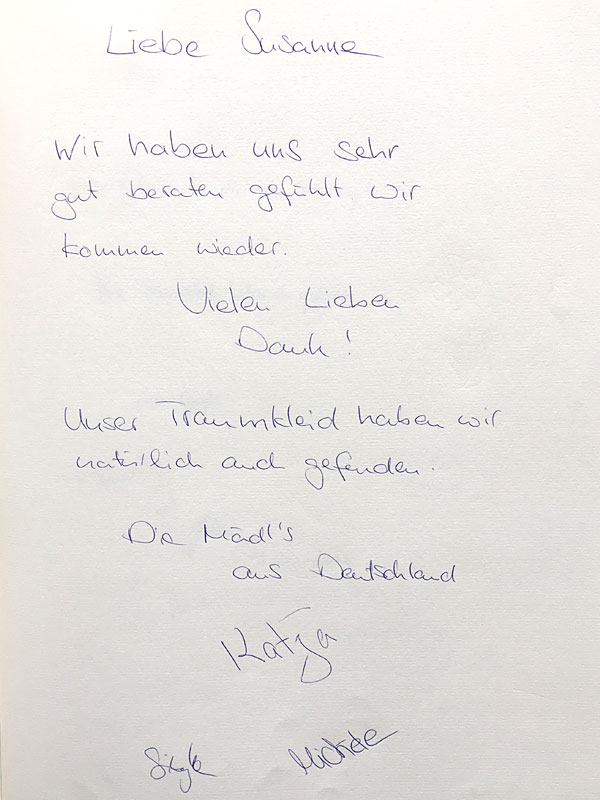 Liebe Susanne
Wir haben uns sehr
gut beraten gefühlt wir
kommen wieder.
Vielen Lieben
Dank!
Unser Traumkleid haben wir
natürlich auch gefunden.
Die Mädl's
aus Deutschland
Katja
Michele